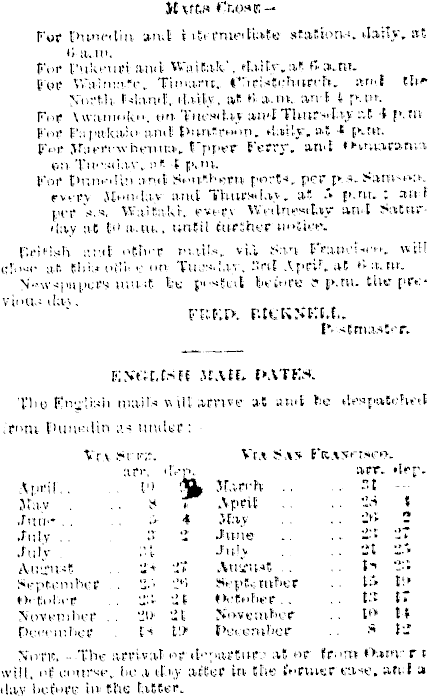 MAILS CLOSE—
For Dunedin and intermediate stations, daily, at
6 a.m.
For Pukeuri and Waitaki, daily, at 6 a.m.
For Waimate, Timaru, Christchurch, and the
North Island, daily, at 6 a.m. and 4 p.m.
For Awamoko, on Tuesday and Thursday at 4 p.m
For Papakaio and Duntroon, daily, at 4 p.m.
For Maerewhenua, Upper Ferry, and Omarama
on Tuesday, at 4 p.m.
For Dunedin and Southern ports, per p.s. Samson,
every Monday and Thursday, at 5 p.m.; and
per s.s. Waitaki, every Wednesday and Satur-
day at 10 a.m., until further notice.
British and other mails, via San Francisco, will
close at this office on Tuesday, 3rd April, at 6 a.m.
Newspapers must be posted before 8 p.m. the pre-
vious day.
FRED. BICKNELL,
Postmaster.
ENGLISH MAIL DATES.
The English mails will arrive at and be despatched
from Dunedin as under:—
VIA SUEZ. VIA SAN FRANCISCO.
arr. dep. arr. dep.
April .. .. 10 March .. .. 31 —
May .. .. 8 7 April .. .. 28 4
June .. .. 5 4 May .. .. 26 2
July .. .. 3 2 June .. .. 23 27
July .. .. 31 July .. .. 21 25
August .. 28 27 August .. .. 18 23
September .. 25 26 September .. 15 19
October .. 23 24 October .. .. 13 17
November .. 20 21 November .. 10 14
December .. 18 19 December .. 8 12
NOTE.—The arrival or departure at or from Oamaru
will, of course, be a day after in the former case, and a
day before in the latter.